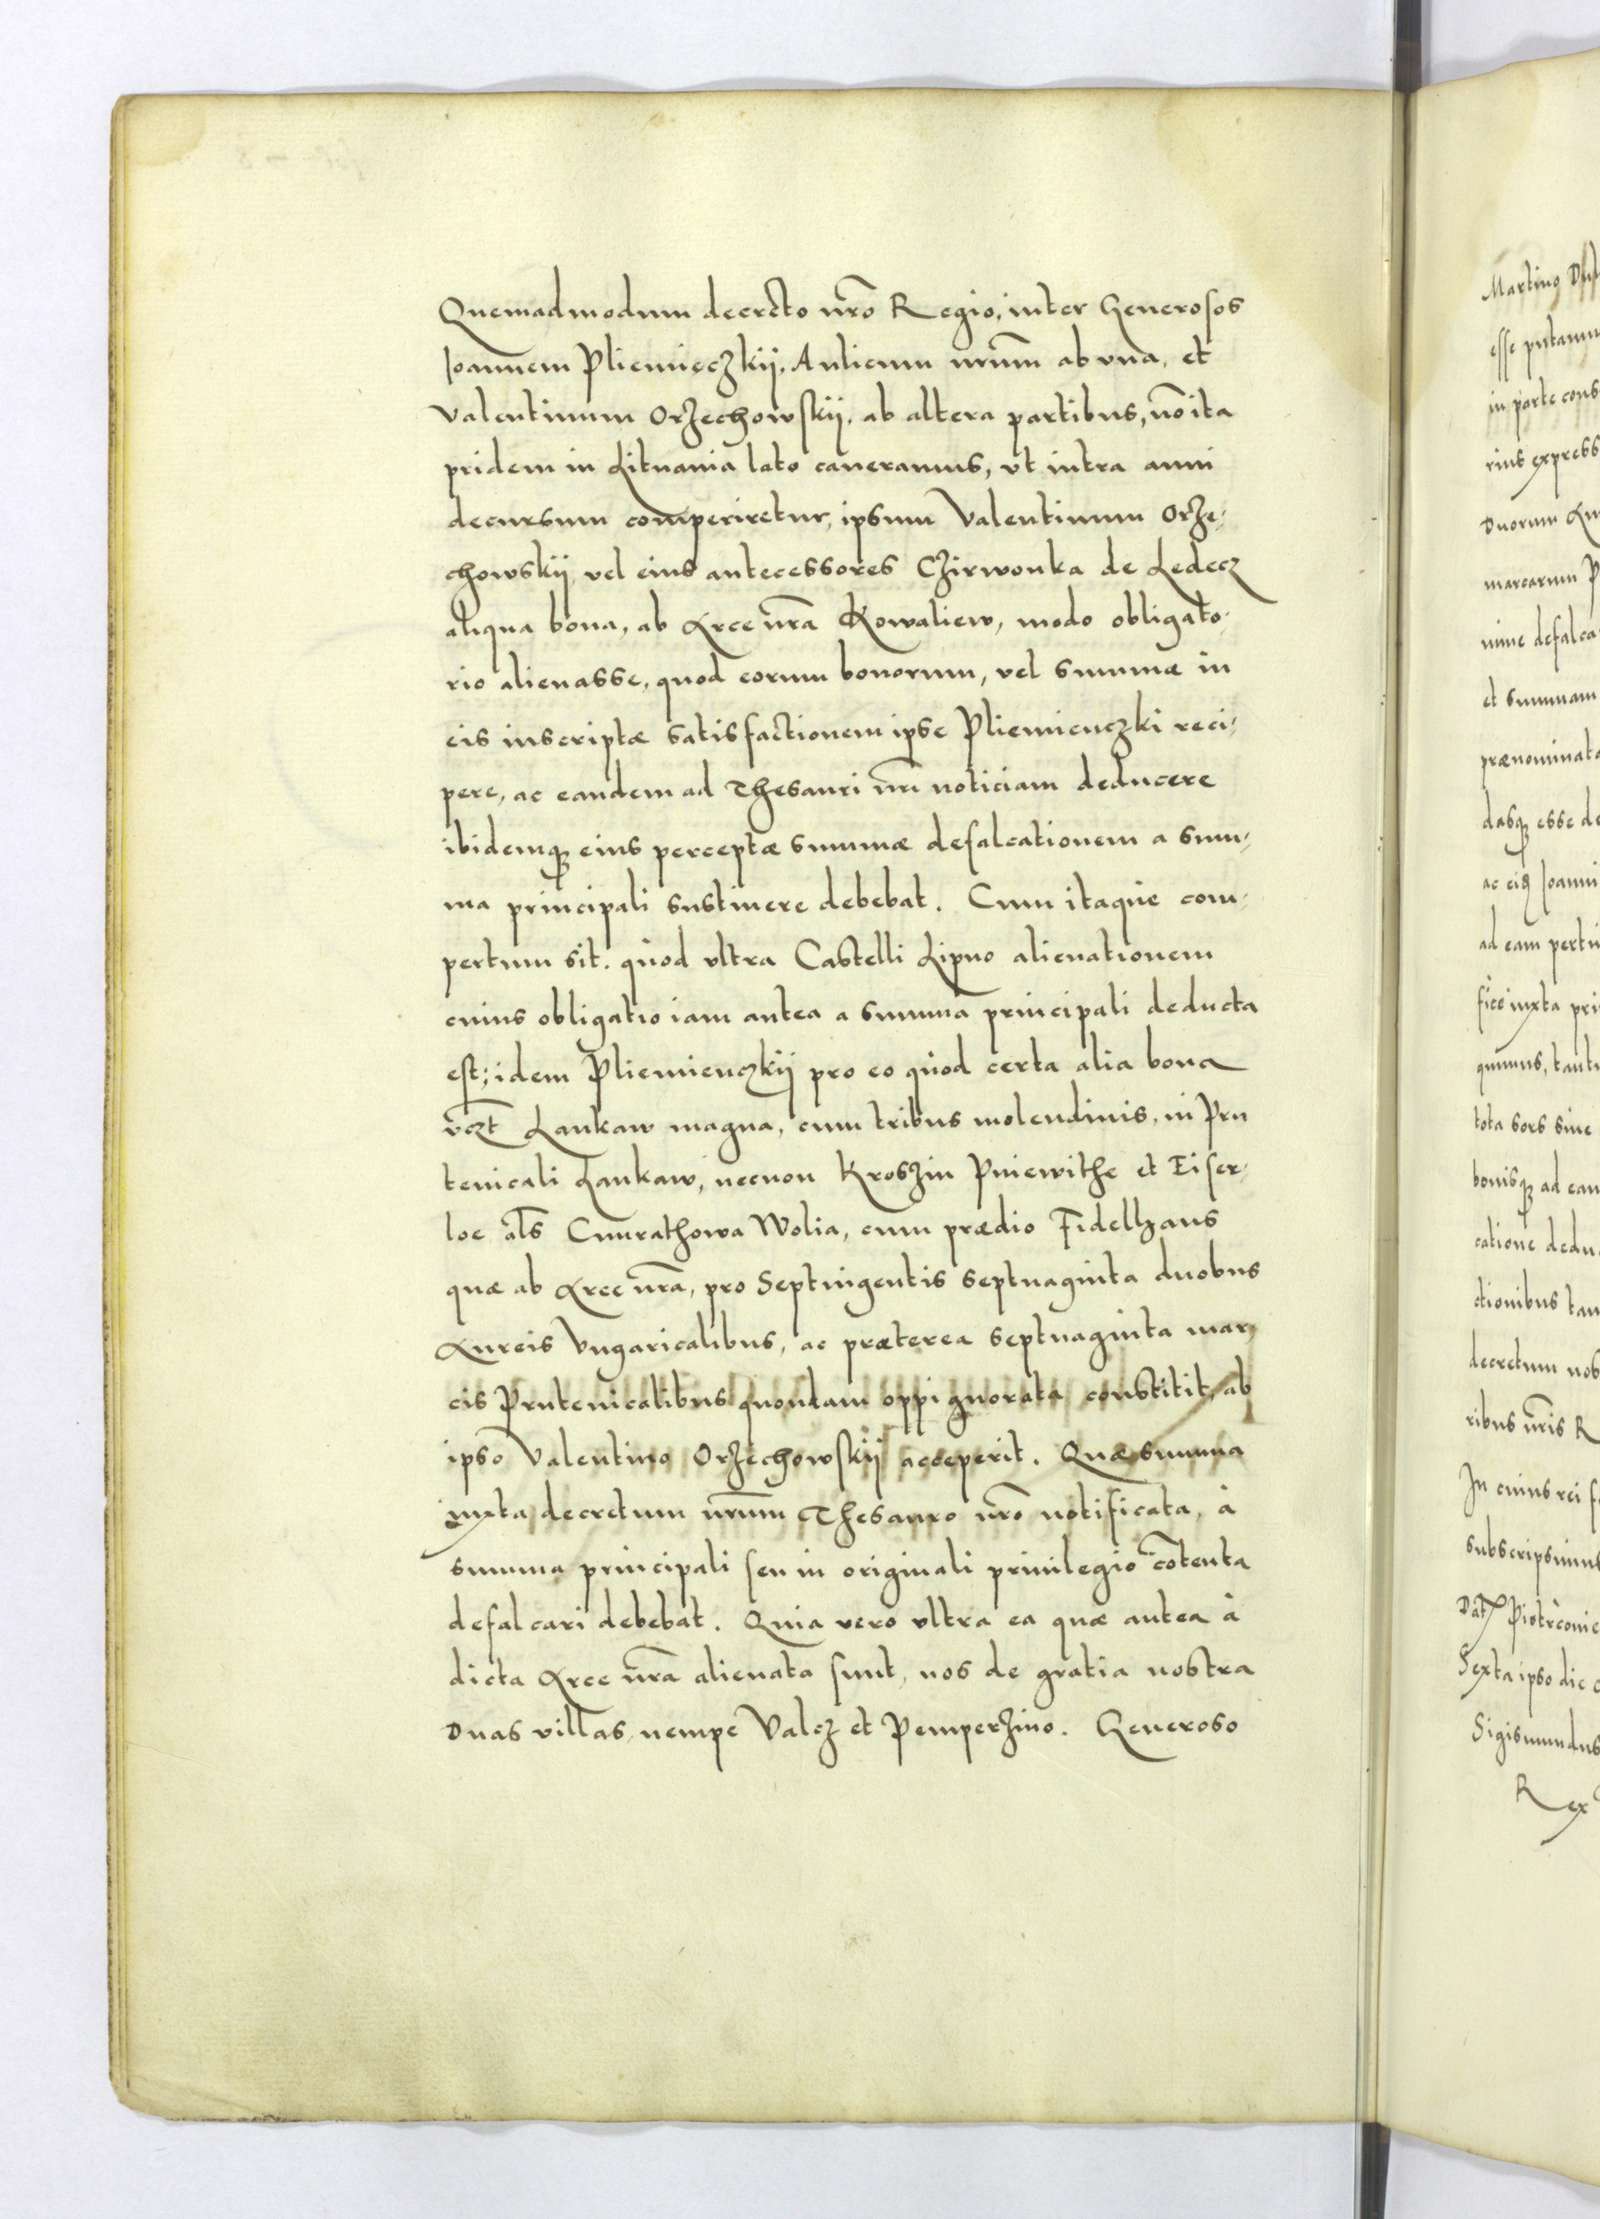 Quemadmodum decreto nr̄o Regio, inter Generosos
Joannem Pliemięczkij, Aulicum nrūm ab vna, et
Valentinum Orzechowskij, ab altera partibus, nō ita
pridem in Lituania lato caueramus, vt intra anni
decursum comperiretur, ipsum Valentinum Orze-
chowskij vel eius antecessores Czirwonka de Ledecz
aliqua bona, ab Arce nr̄a Kowaliew, modo obligato-
rio alienasse, quod eorum bonorum, vel summæ in
eis inscriptæ satisfactionem ipse Pliemienczki reci-
pere, ac eandem ad Thesauri nr̄i noticiam deducere
ibidemq; eius perceptæ summæ defalcationem a sum-
ma principali sustinere debebat. Cum itaque com-
pertum sit. quod vltra Castelli Lipno alienationem
cuius obligatio iam antea a summa principali deducta
est; idem Pliemienczkij pro eo quod certa alia bona
vczt Lankaw magna, cum tribus molendinis, in Pru
tenicali Lankaw, necnon Kroszin Pniewithe et Eiser-
loe als̄ Cunrathowa Wolia, cum prædio Fidelhaus
quæ ab Arce nr̄a, pro Septingentis septuaginta duobus
Aureis Vngaricalibus, ac præterea septuaginta mar-
cis Prutenicalibus quondam oppignorata constitit, ab
ipso Valentino Orzechowskij acceperit. Quæ summa
iuxta decretum nrūm Thesauro nr̄o notificata, à
summa principali seu in originali priuilegio cōtenta
defalcari debebat. Quia vero vltra ea quæ antea à
dicta Arce nr̄a alienata sunt, nos de gratia nostra
Duas villas, nempe Valcz et Pemperzino. Generoso
Martino
esse putamu
in parte cons
rius express
Duorum
marcarum P
nime defalca
et summam
prænominata
dasq; esse de
ac eiq Joanni
ad eam perti
fice iuxta pri
quimus, tant
tota sors sine
bonisq; ad eam
catione dedu
ctionibus tam
decretum nos
ribus nr̄is R
In cuius rei f
subscripsimus
Dat Piotrcouie
Sexta ipso die
Sigismundus
Rex